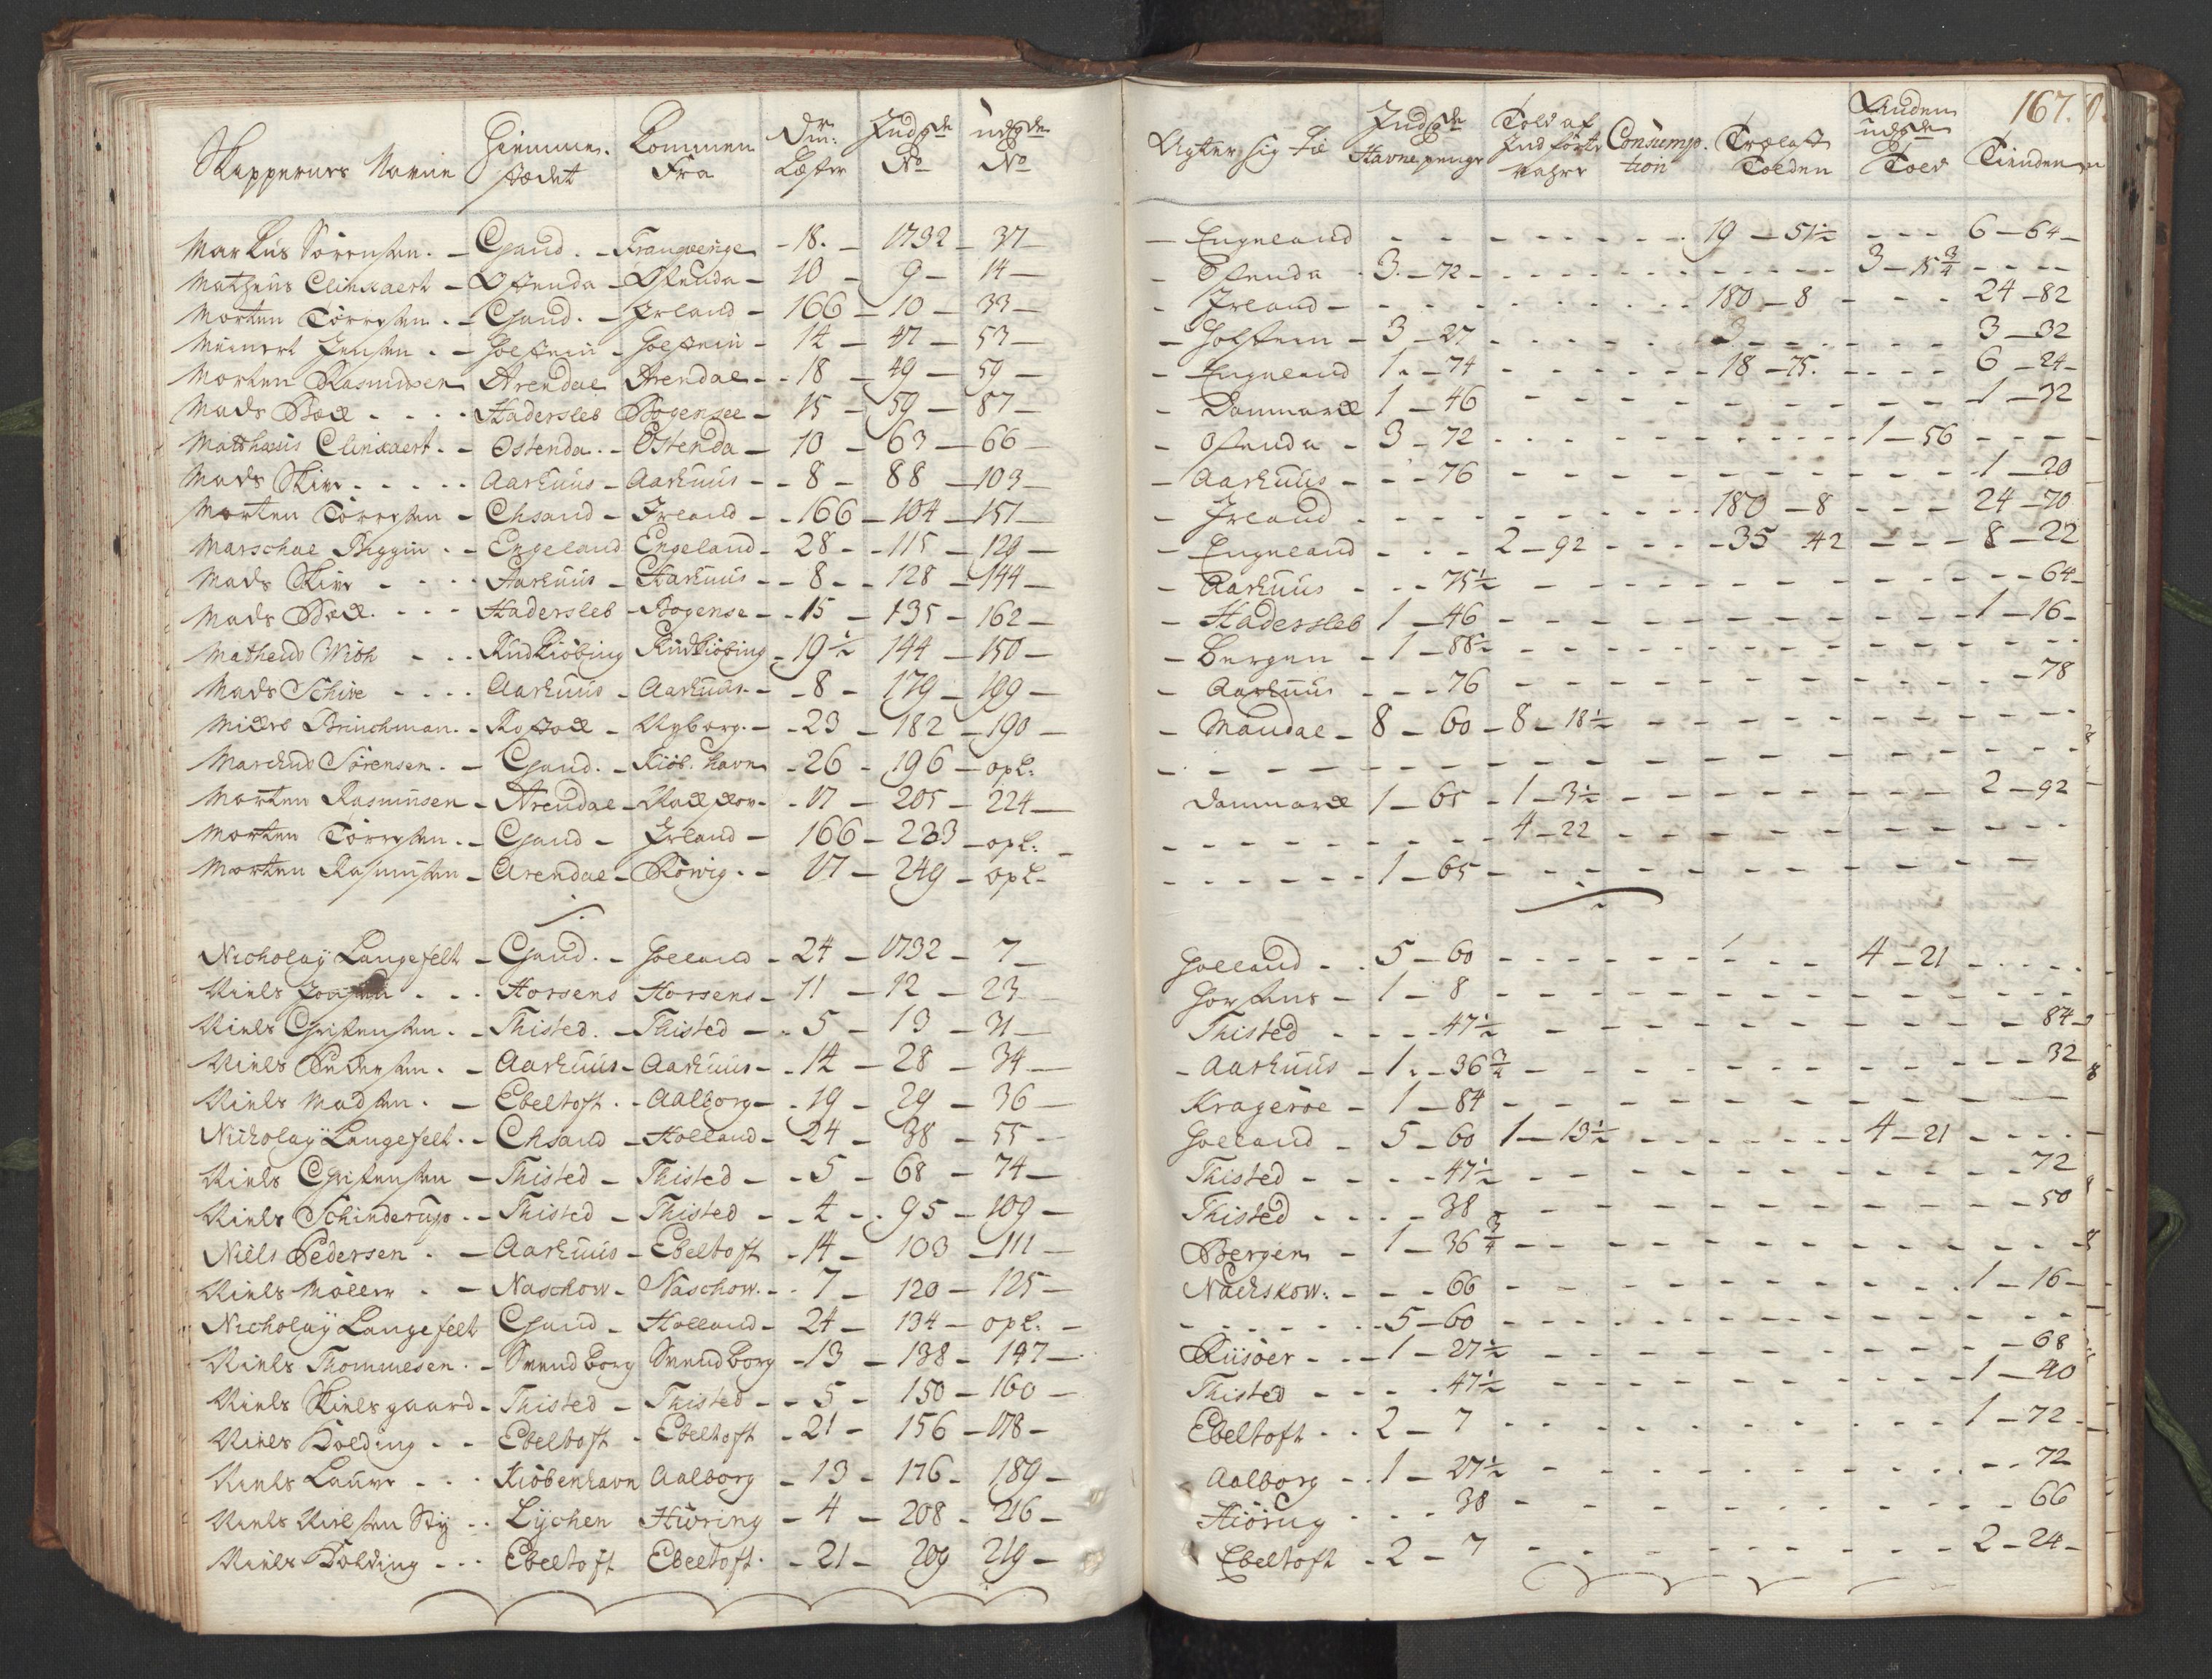 Skippernes Navne | Hiemme stædet | Kommen Fra | Dræ: Læster | Indgde No | udgde No | Agter sig til | Indgde Havnepenge | Told af Indførte vahre | Consumption | Trælast Tolden | Anden udgde Told | Tienden
167.
Markus Sørensen. - Chand. - Frangverige - 18. - 1732 - 37 - Engeland - - - 19 - 51½ - - - 6 - 64
Matheus Clinkaert - Ostenda - Ostenda - 10 - 9 - 14 - Ostenda - 3 - 72 - - - 3 - 15¾ - - -
Morten Tørresen. - Chand. - Irland - 166 - 10 - 33 - Irland - - - 180 - 8 - - - 24 - 82
Meinert Jensen. - Holstein - Holstein - 14 - 47 - 53 - Holstein - 3 - 27 - - - 3 - 32
Morten Rasmussen Arendal Arendal - 18 - 49 - 59 - Engeland 1 - 74 - - - 18 - 75. - - - 6 - 24
Mads Bæck - - - Hadersleb Bogensee - 15 - 59 - 87 - Danmarck 1 - 46 - - - 1 - 32
Matthæus Clinkaert. - Ostenda. - Ostenda - 10 - 63 - 66 - Ostenda - 3 - 72 - - - 1 - 56 - - -
Mads Skive - - - Aarhuus - Aarhuus - 8 - 88 - 103 - Aarhuus - - - 76 - - - 1 - 20
Morten Tørresen - Chsand - Irland - 166 - 104 - 151 - Irland - - - 180 - 8 - - - 24 - 70
Marschal Biggin. - Engeland Engeland - 28 - 115 - 129 - Engeland - - - 2 - 92 - - - 35 - 42 - - - 8 - 22
Mads Skive - - - Aarhuus - Aarhuus - 8 - 128 - 144 - Aarhuus - - - 75½ - - - 64
Mads Bæck. - - - Hadersleb - Bogense - 15 - 135 - 162 - Hadersleb 1 - 46 - - - 1 - 16
Matheus With - - - Rudkiøbing Rudkiøbing - 19½ 144 - 150 - Bergen - 1 - 88½ - - -
Mads Schive - - - Aarhuus - Aarhuus. - 8 - 179 - 199 - Aarhuus - - - 76 - - - 78
Mickel Brinchman. - Rostock - Nyborg. - 23 - 182 - 190 - Mandal - 8 - 60 - 8 - 18½ - - -
Marckus Sørensen. - Chand. - Kiøb. havn - 26 - 196 - opl. - - -
Morten Rasmusen - Arendal - - 17 - 205 - 224 - Danmarck 1 - 65 - 1 - 3½ - - - 2 - 92
Morten Tørresen. - Chand - Irland - 166 - 233 - opl. - - - 4 - 22 - - -
Morten Rasmussen - Arendal - Rørvig. - 17 - 249 - opl. - - - 1 - 65 - - -
Nicholaÿ Langefelt - Chand. - Holland - 24 - 1732 - 7 - Holland - 5 - 60 - - - 4 - 21 - - -
Niels - - - Horsens Horsens - 11 - 12 - 23 Horsens - 1 - 8 - - -
Niels Christensen. - Thisted. - Thisted - 5 - 13 - 31 - Thisted - - - 47½ - - - 84
Niels Pedersen. - Aarhuus - Aarhuus - 14 - 28 - 34 - Aarhuus - 1 - 36¾ - - - 32
Niels Madsen. - Ebeltoft. - Aalborg - 19 - 29 - 36 - Kragerøe - 1 - 84 - - -
Nicholaÿ Langefelt. - Chsand - Holland - 24 - 38 - 55 - Holland - 5 - 60 1 - 13½ - - - 4 - 21 - - -
Niels Christensen - Thisted - Thisted - 5 - 68 - 74 - Thisted - - - 47½ - - - 72
Niels Schinderup. - Thisted - Thisted - 4 - 95 - 109 - Thisted - - - 38 - - - 50
Niels Pedersen. - Aarhuus - Ebeltoft - 14 - 103 - 111 - Bergen - 1 - 36¾ - - -
Niels Møller. - Naschow - Naschow. - 7 - 120 - 125 - Nackskow. - - - 66 - - - 1 - 16
Nicholaÿ Langefelt Chand - Holland - 24 - 134 - opl. - - - 5 - 60 - - -
Niels Thommesen. - Svendborg Svendborg - 13 - 138 - 147 - Riisøer - - - 1 - 27½ - - - 68
Niels Kielsgaard - Thisted - Thisted - 5 - 150 - 160 - Thisted - - - 47½ - - - 1 - 40
Niels Holding - - Ebeltoft - Ebeltoft - 21 - 156 - 178 - Ebeltoft - 2 - 7 - - - 1 - 72
Niels Laure - - - Kiøbenhavn Aalborg - 13 - 176 - 189 - Aalborg - 1 - 27½ - - - 72
Niels Nielsen Stÿ - Lÿchen Hiøring - 4 - 208 - 216 - Hiøring - - - 38 - - - 66
Niels Holding - - - Ebeltoft Ebeltoft - 21 - 209 219 - Ebeltoft - 2 - 7 - - - 2 - 24